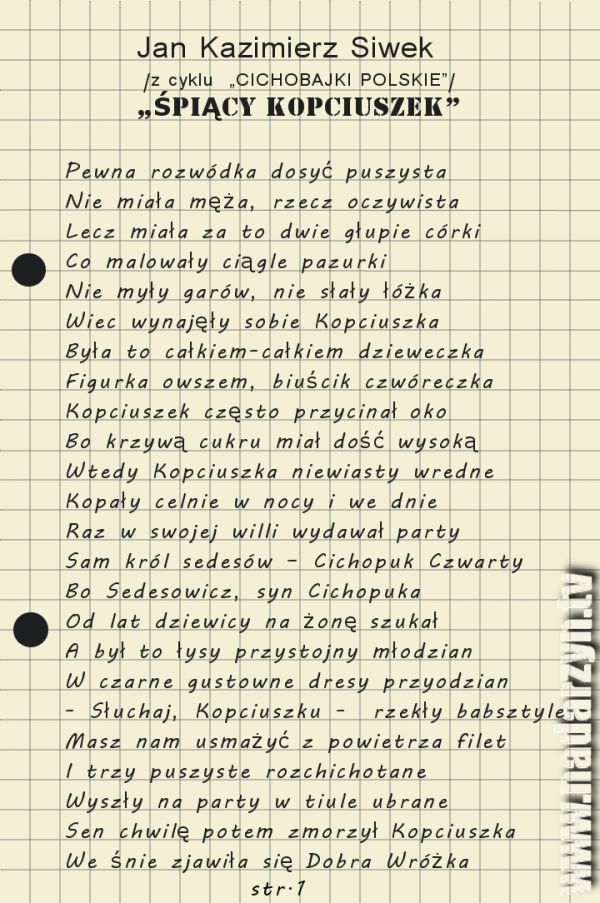 Jan Kazimierz Siwek
/z cyklu „CICHOBAJKI POLSKIE”/
„ŚPIĄCY KOPCIUSZEK”
Pewna rozwódka dosyć puszysta
Nie miała męża, rzecz oczywista
Lecz miała za to dwie głupie córki
Co malowały ciągle pazurki
Nie myły garów, nie słały łóżka
Wiec wynajęły sobie Kopciuszka
Była to całkiem-całkiem dzieweczka
Figurka owszem, biuścik czwóreczka
Kopciuszek często przycinał oko
Bo krzywą cukru miał dość wysoką
Wtedy Kopciuszka niewiasty wredne
Kopały celnie w nocy i we dnie
Raz w swojej willi wydawał party
Sam król sedesów – Cichopuk Czwarty
Bo Sedesowicz, syn Cichopuka
Od lat dziewicy na żonę szukał
A był to łysy przystojny młodzian
W czarne gustowne dresy przyodzian
- Słuchaj, Kopciuszku - rzekły babsztyle
Masz nam usmażyć z powietrza filet
I trzy puszyste rozchichotane
Wyszły na party w tiule ubrane
Sen chwilę potem zmorzył Kopciuszka
We śnie zjawiła się Dobra Wróżka
str.1
www.nadarzyn.tv